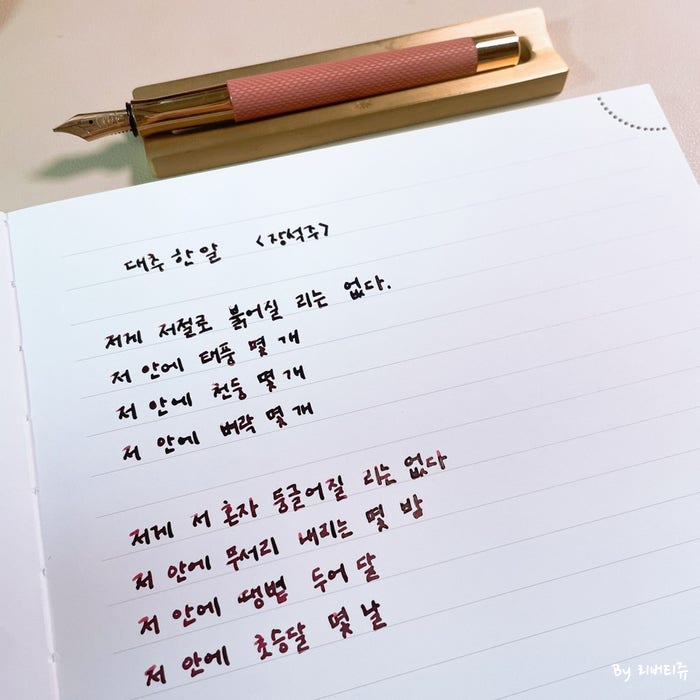 대추 한 알 <장석주>
저게 저절로 붉어질 리는 없다.
저 안에 태풍 몇 개
저 안에 천둥 몇 개
저 안에 벼락 몇 개
저게 저 혼자 둥글어질 리는 없다
저 안에 무서리 내리는 몇 밤
저 안에 땡볕 두어 달
저 안에 초승달 몇 날
By 리버티쥬